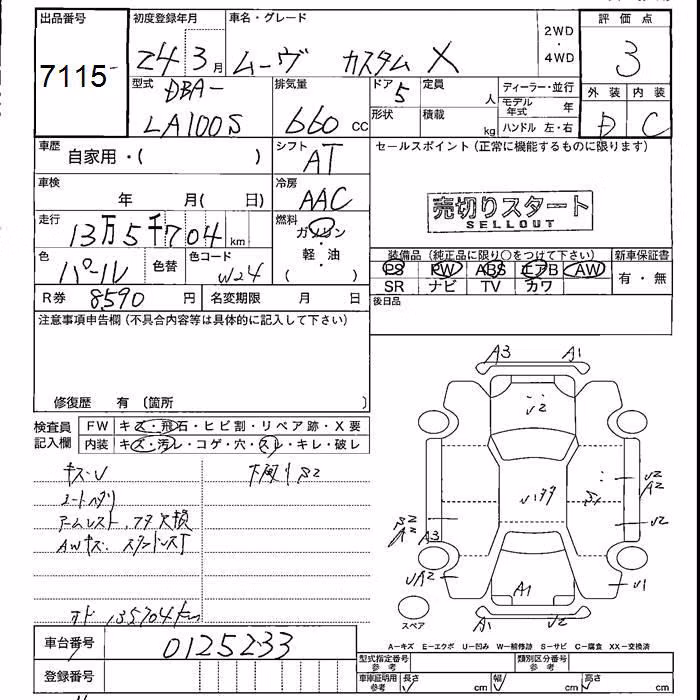 出品番号 初度登録年月 車名・グレード 2WD・4WD 評価点
7115 24 3月 ムーヴ カスタム X 3
型式 DBA- 排気量 ドア 5 定員 人 ディーラー・並行 外装 内装
LA100S 660 cc 形状 積載 kg モデル年式 年 D C
ハンドル 左・右
車歴 自家用・( ) シフト AT セールスポイント(正常に機能するものに限ります)
車検 年 月( 日) 冷房 AAC
売切りスタート
SELLOUT
走行 13万5千704km 燃料 ガソリン・軽・油 ( )
色 パール 色替 色コード W24 装備品(純正品に限り○をつけて下さい) 新車保証書
PS PW ABS エアB AW 有・無
SR ナビ TV カワ
R券 8590円 名変期限 月 日 後日品
注意事項申告欄(不具合内容等は具体的に記入して下さい)
修復歴 有 (箇所
検査員記入欄 FW キズ・飛石・ヒビ割・リペア跡・X要
内装 キズ・汚レ・コゲ・穴・スレ・キレ・破レ
キズ・U 下廻り S2
シートヘタリ
アームレスト フタ欠損
AWキズ
オド 135704km
A3 A1
U2
U2
A2
A3
U2
UA2
U1
A1
A1 U2
スペア
A−キズ E−エクボ U−凹み W−補修跡 S−サビ C−腐食 XX−交換済
車台番号 0125233
型式指定番号 参考 類別区分番号 参考
登録番号 車庫証明用 参考 長さ cm 幅 cm 高さ cm